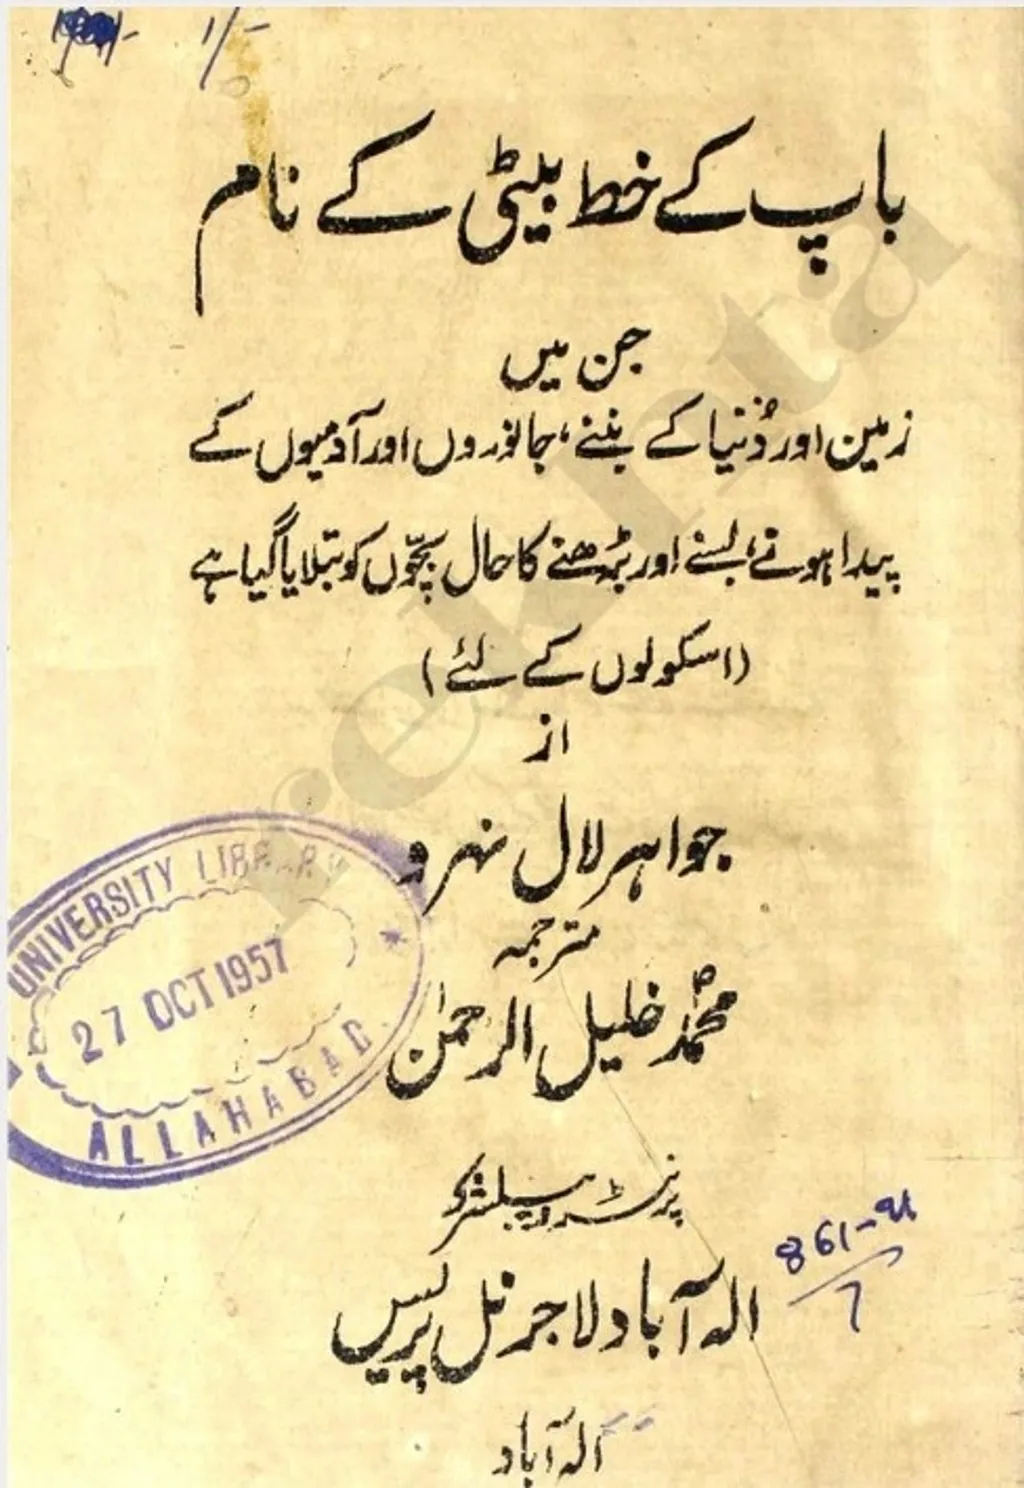 1/-
باپ کے خط بیٹی کے نام
جن میں
زمین اور دُنیا کے بننے، جانوروں اور آدمیوں کے
پیدا ہونے، بسنے اور بڑھنے کا حال بچّوں کو بتلایا گیا ہے
(اسکولوں کے لئے)
از
جواہر لال نہرو
مترجمہ
محمّد خلیل الرحمٰن
UNIVERSITY LIBRARY
27 OCT 1957
ALLAHABAD
پرنٹر پبلشر
861-91
7
الہ آباد لا جرنل پریس
الہ آباد
rekhta